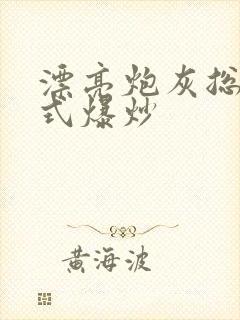 漂亮炮灰总
式爆炒
黄海波